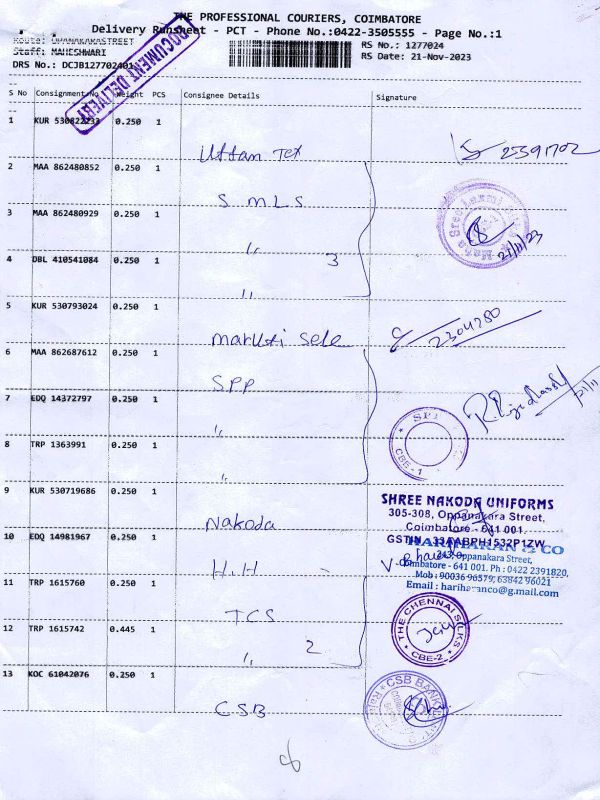 THE PROFESSIONAL COURIERS, COIMBATORE
Delivery Runsheet - PCT - Phone No.:0422-3505555 - Page No.:1
Route: OPPANAKARASTREET
Staff: MAHESHWARI
DRS No.: DCJB127702401
RS No.: 1277024
RS Date: 21-Nov-2023
DOCUMENT DELIVERY
S No Consignment No Weight PCS Consignee Details Signature
1 KUR 530822233 0.250 1
Uttan Tex 25391702
2 MAA 862480852 0.250 1
S M L S
3 MAA 862480929 0.250 1
" 3 21/11/23
4 DBL 410541084 0.250 1
"
5 KUR 530793024 0.250 1
Maruti Sele 2304280
6 MAA 862687612 0.250 1
SPP
7 EDQ 14372797 0.250 1
" 21/11
8 TRP 1363991 0.250 1
" CBE-1
9 KUR 530719686 0.250 1
Nakoda
SHREE NAKODA UNIFORMS
305-308, Oppanakara Street,
Coimbatore - 641 001.
GSTIN 33AABPH1532P1ZW
10 EDQ 14981967 0.250 1
H.H
HARIHARAN & CO
243, Oppanakara Street,
Coimbatore - 641 001. Ph : 0422 2391820,
Mob : 90036 96579, 63842 96021
Email : hariharanco@g.mail.com
11 TRP 1615760 0.250 1
TCS
THE CHENNAI SILKS
CBE-2
12 TRP 1615742 0.445 1
" 2
13 KOC 61042076 0.250 1
CSB
CSB BANK